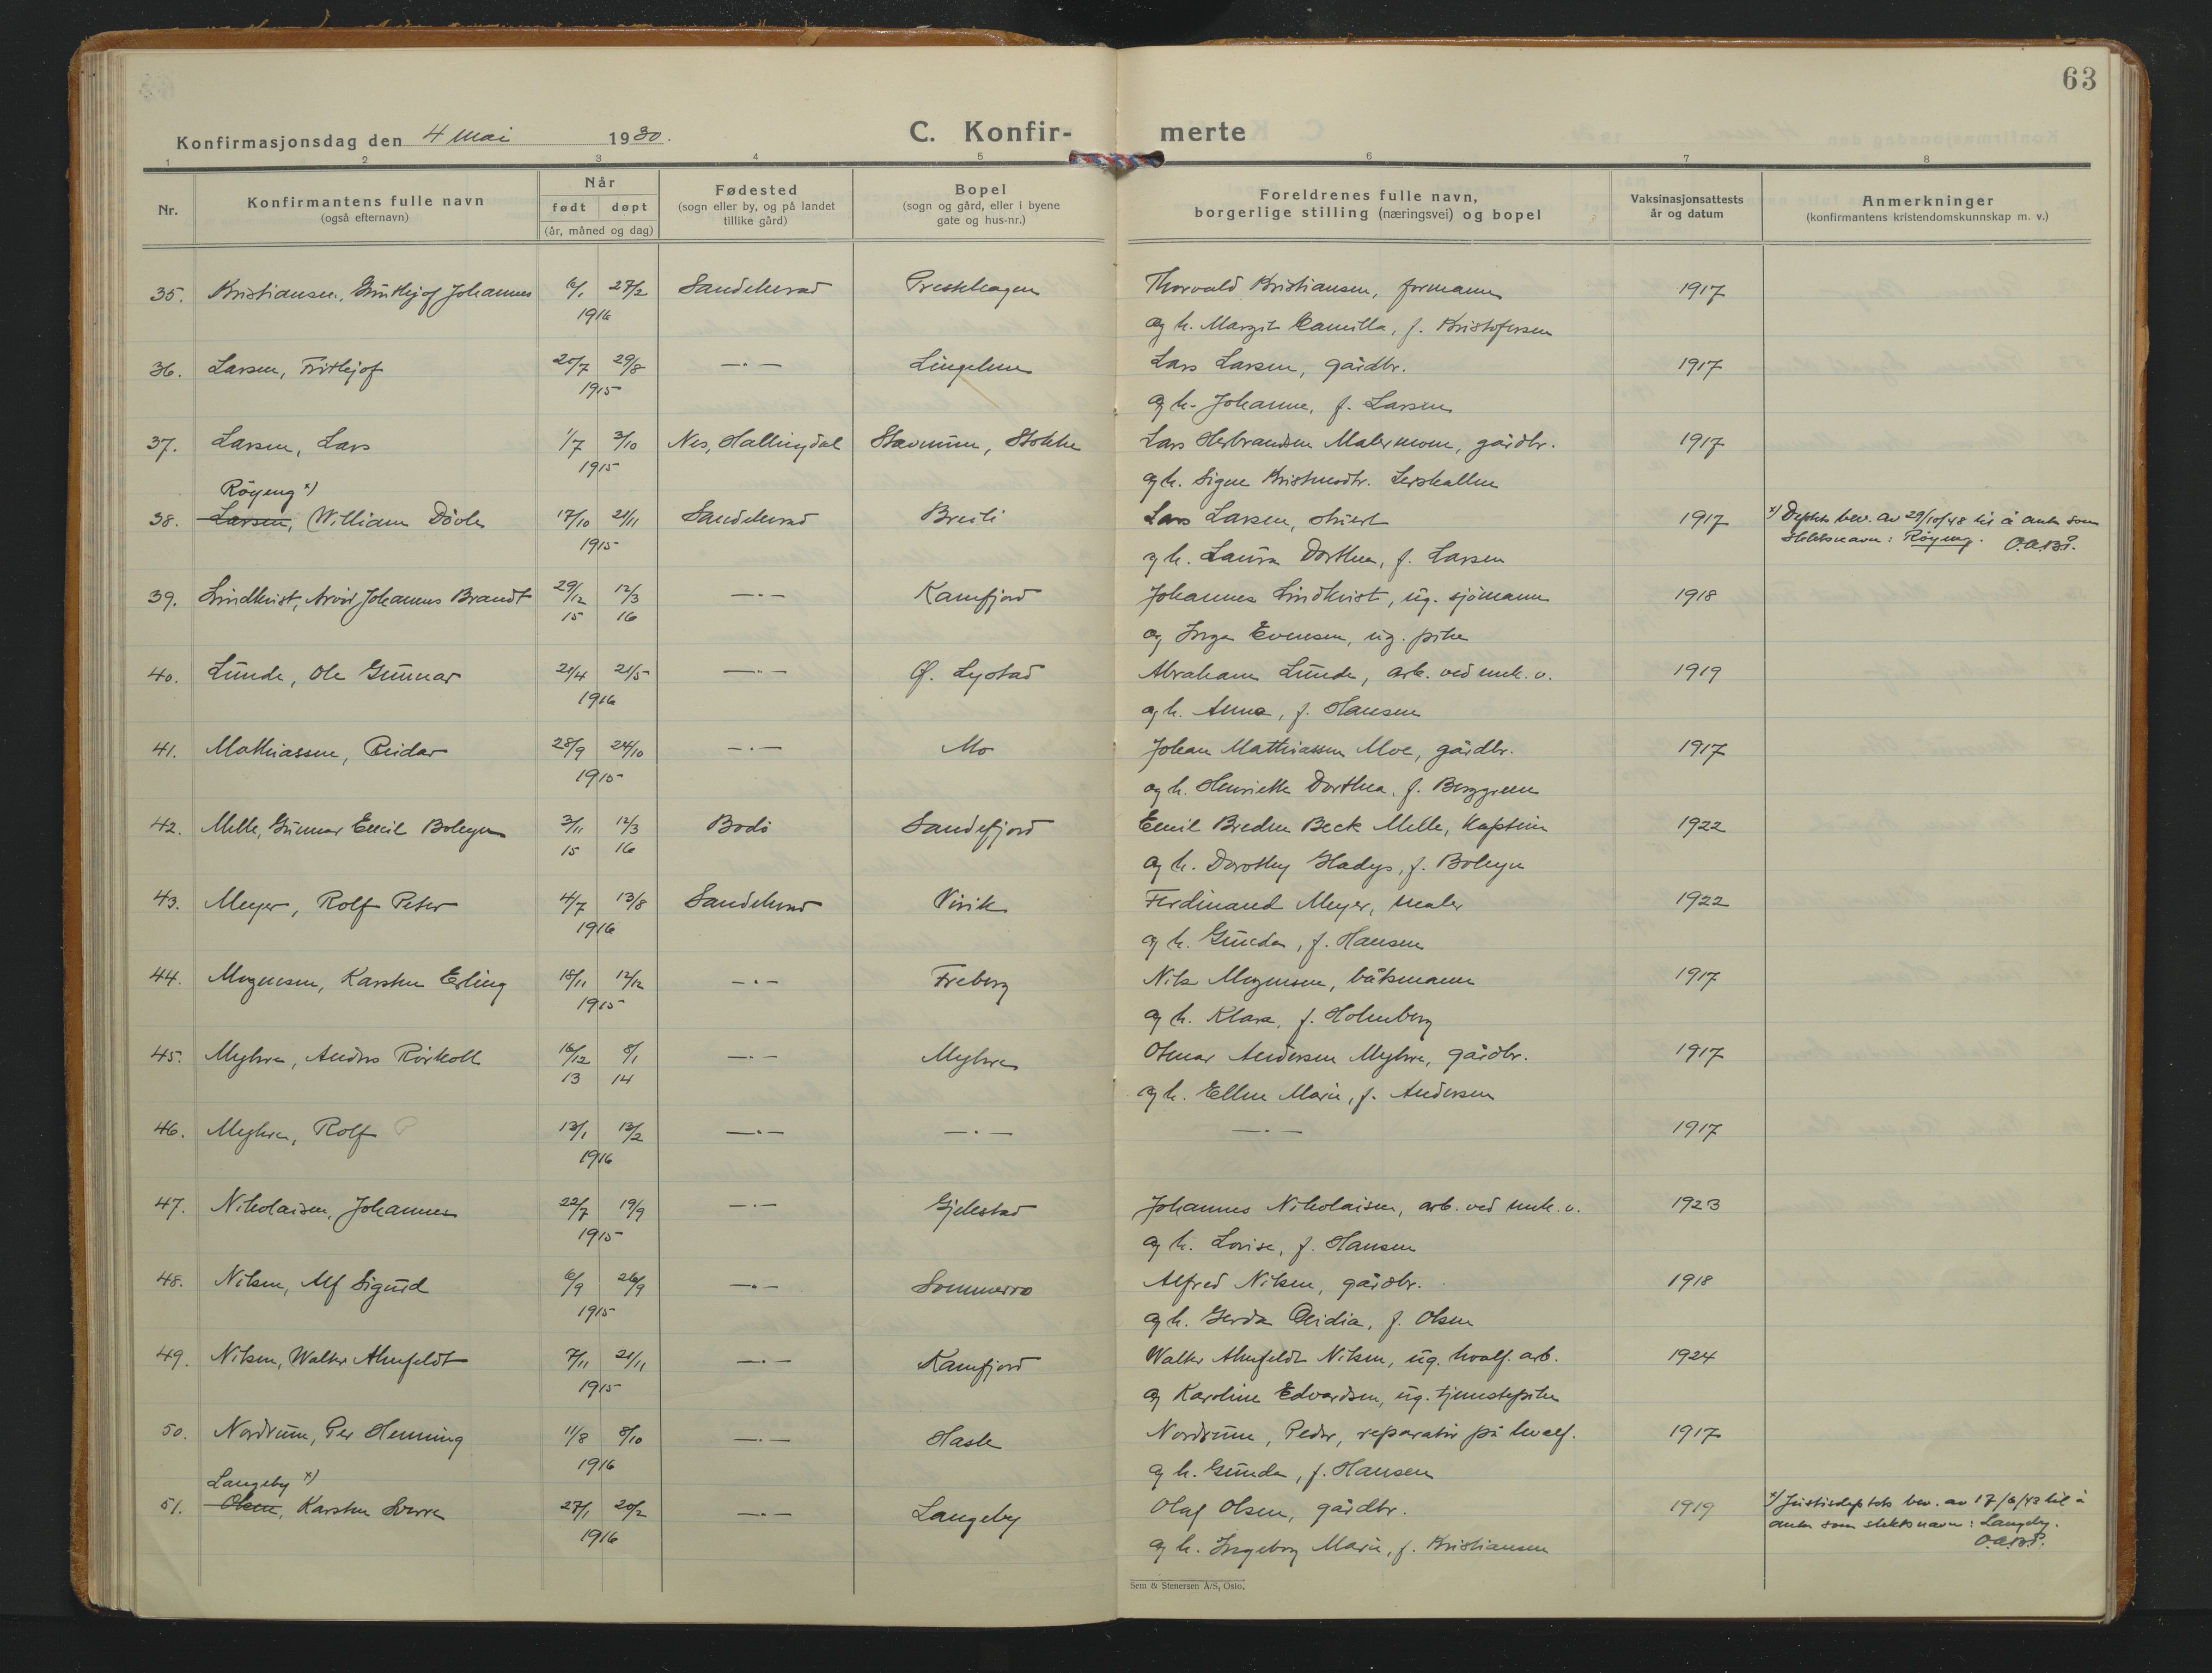 63
Konfirmasjonsdag den 4 mai 1930.
C. Konfir- merte
1 2 3 4 5 6 7 8
Nr.
Konfirmantens fulle navn
(også efternavn)
Når
født døpt
(år, måned og dag)
Fødested
(sogn eller by, og på landet
tillike gård)
Bopel
(sogn og gård, eller i byene
gate og hus-nr.)
Foreldrenes fulle navn,
borgerlige stilling (næringsvei) og bopel
Vaksinasjonsattests
år og datum
Anmerkninger
(konfirmantens kristendomskunnskap m. v.)
35. Kristiansen, Johannes 6/1 27/2 Sandeherad Preståsen Thorvald Kristiansen, formann 1917
1916 og h. Margit Camilla, f. Kristofersen
36. Larsen, Frithjof 20/7 29/8 —.— Lingelem Lars Larsen, gårdbr. 1917
1915 og h. Johanne, f. Larsen
37. Larsen, Lars 1/7 3/10 Nes, Hallingdal Stavnum, Stokke Lars Herbrandsen Malermoen, gårdbr. 1917
1915 og h. Signe
Röyeng x)
38. Larsen, William Dövle 17/10 21/11 Sandeherad Breili Lars Larsen, 1917 x) Deptets bev. av 29/10/48 til å anta som
1915 og h. Laura Dorthea, f. Larsen slektsnavn: Röyeng. O.A.B.
39. Lindkvist, Arvid Johannes Brandt 29/12 12/3 —.— Kamfjord Johannes Lindkvist, ug. sjömann 1918
15 16 og Inga Evensen, ug. pike
40. Lunde, Ole Gunnar 21/4 21/5 —.— Ø. Lystad Abraham Lunde, arb. ved mek. v. 1919
1916 og h. Anna, f. Hansen
41. Mathiassen, Reidar 28/9 24/10 —.— Mo Johan Mathiassen Moe, gårdbr. 1917
1915 og h. Henriette Dorthea, f. Berggreen
42. Melle, Gunnar Emil Boleyn 3/11 12/3 Bodö Sandefjord Emil Breden Beck Melle, kaptein 1922
15 16 og h. Dorothy Gladys, f. Boleyn
43. Meyer, Rolf Peter 4/7 13/8 Sandeherad Virik Ferdinand Meyer, maler 1922
1916 og h. Gunda, f. Hansen
44. Mogensen, Karsten Erling 18/11 12/12 —.— Freberg Nils Mogensen, båtsmann 1917
1915 og h. Klara, f. Holmberg
45. Myhre, Anders Rörkoll 16/12 8/1 —.— Myhre Otmar Andersen Myhre, gårdbr. 1917
13 14 og h. Ellen Marie, f. Andersen
46. Myhre, Rolf 13/1 13/2 —.— —.— —.— 1917
1916
47. Nikolaisen, Johannes 22/7 19/9 —.— Gjelestad Johannes Nikolaisen, arb. ved mek. v. 1923
1915 og h. Lovise, f. Hansen
48. Nilsen, Alf Sigurd 6/9 26/9 —.— Sommerro Alfred Nilsen, gårdbr. 1918
1915 og h. Gerda f. Olsen
49. Nilsen, Walter Ahnfeldt 7/11 21/11 —.— Kamfjord Walter Ahnfeldt Nilsen, ug. hvalf. arb. 1924
1915 og Karoline Edvardsen, ug. tjenestepike
50. Nordrum, Per Henning 11/8 8/10 —.— Hasle Nordrum, Peder, reparatör på hvalf. 1917
1916 og h. Gunda, f. Hansen
Langeby x)
51. Olsen, Karsten Sverre 27/1 20/2 —.— Langeby Olaf Olsen, gårdbr. 1919 x) Justisdeptets bev. av 17/6/43 til å
1916 og h. Ingeborg Marie, f. Kristiansen anta som slektsnavn: Langeby.
O.A.B.
Sem & Stenersen A/S, Oslo.